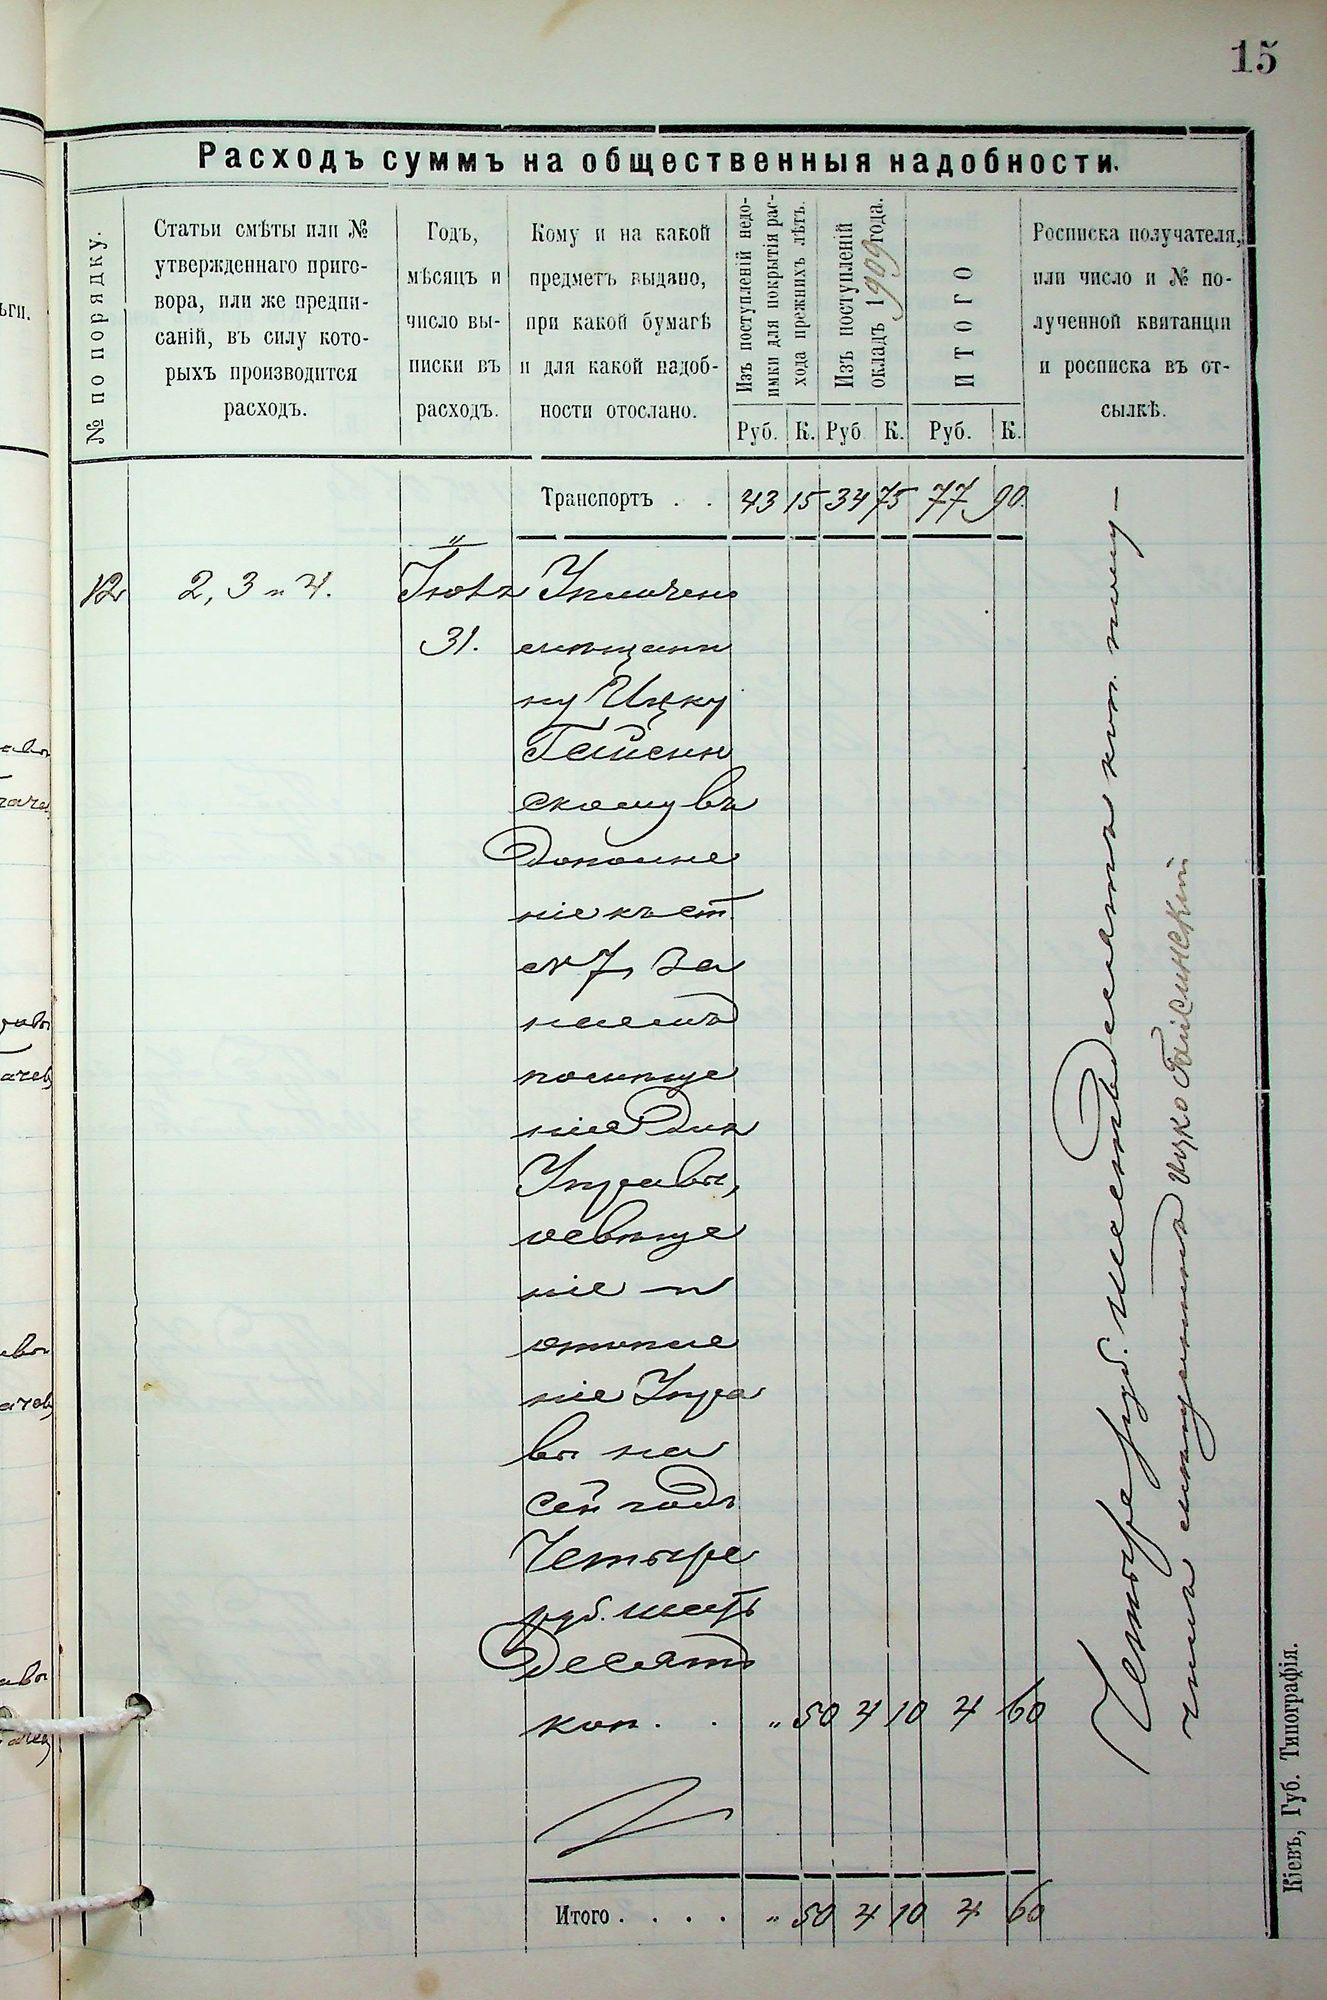 15
Расходъ суммъ на общественныя надобности.
№ по порядку.
Статьи смѣты или №
утвержденнаго приго-
вора, или же предпи-
саній, въ силу кото-
рыхъ производится
расходъ.
Годъ,
мѣсяцъ и
число вы-
писки въ
расходъ.
Кому и на какой
предметъ выдано,
при какой бумагѣ
и для какой надоб-
ности отослано.
Изъ поступленій недо-
имки для покрытія рас-
хода прежнихъ лѣтъ.
Изъ поступленій
окладъ 1909 года.
ИТОГО
Росписка получателя,
или число и № по-
лученной квитанціи
и росписка въ от-
сылкѣ.
Руб. К. Руб К. Руб. К.
Транспортъ . . 43 15 34 75 77 90.
12 2, 3 и 4. Іюль
31.
Уплачено
мѣщани
ну Ицку
Гайсин
скому въ
дополне
ніе къ ст.
№ 7, за
наемъ
помѣще
нія для
Управы,
освѣще
ніе и
отопле
ніе Упра
вы на
сей годъ
Четыре
руб. шесть
десятъ
коп. . „ 50 4 10 4 60
Итого . . . . „ 50 4 10 4 60
Четыре руб. шестьдесятъ коп. полу-
чилъ мѣщанинъ Ицко Гайсинскій
Кіевъ, Губ. Типографія.